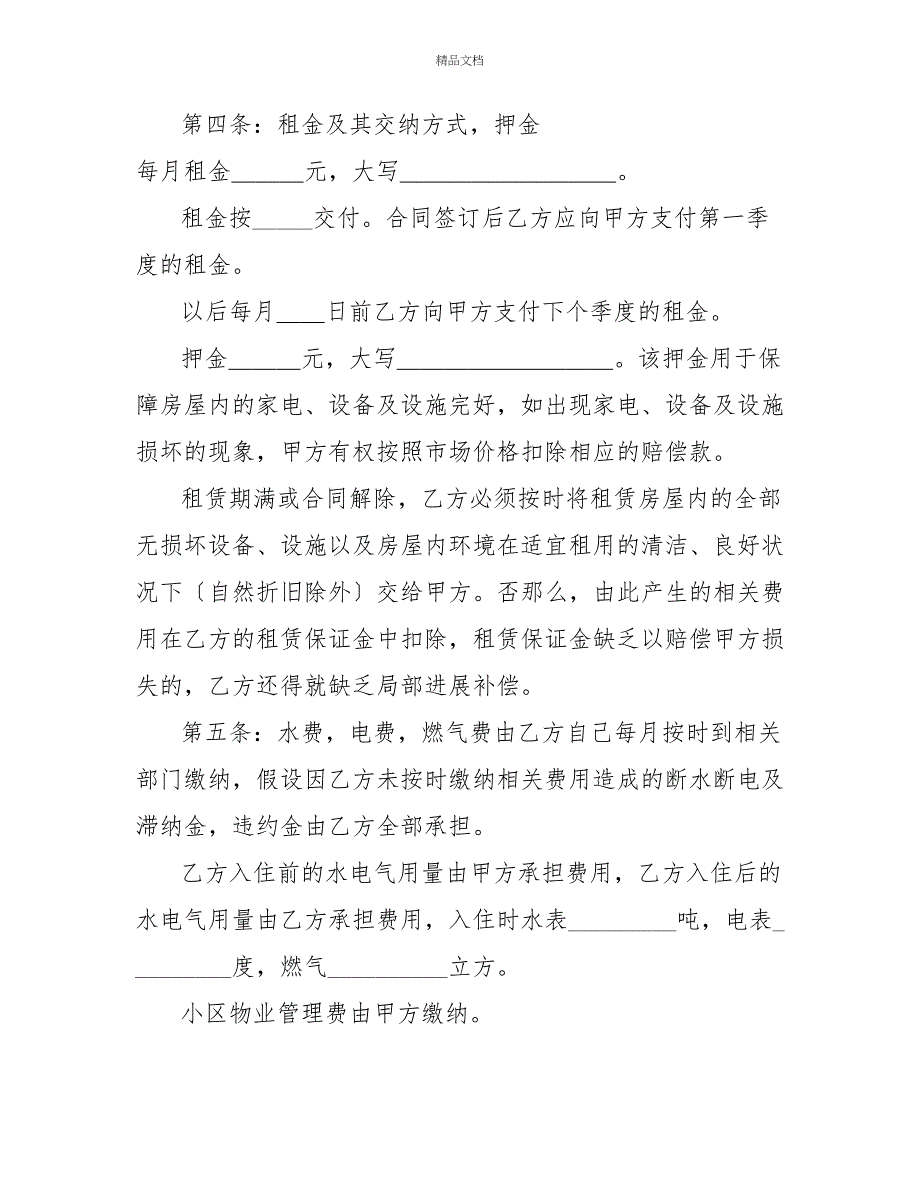 精品文档
第四条：租金及其交纳方式，押金
每月租金______元，大写__________________。
租金按_____交付。合同签订后乙方应向甲方支付第一季
度的租金。
以后每月____日前乙方向甲方支付下个季度的租金。
押金______元，大写__________________。该押金用于保
障房屋内的家电、设备及设施完好，如出现家电、设备及设施
损坏的现象，甲方有权按照市场价格扣除相应的赔偿款。
租赁期满或合同解除，乙方必须按时将租赁房屋内的全部
无损坏设备、设施以及房屋内环境在适宜租用的清洁、良好状
况下〔自然折旧除外〕交给甲方。否那么，由此产生的相关费
用在乙方的租赁保证金中扣除，租赁保证金缺乏以赔偿甲方损
失的，乙方还得就缺乏局部进展补偿。
第五条：水费，电费，燃气费由乙方自己每月按时到相关
部门缴纳，假设因乙方未按时缴纳相关费用造成的断水断电及
滞纳金，违约金由乙方全部承担。
乙方入住前的水电气用量由甲方承担费用，乙方入住后的
水电气用量由乙方承担费用，入住时水表_________吨，电表_
________度，燃气__________立方。
小区物业管理费由甲方缴纳。